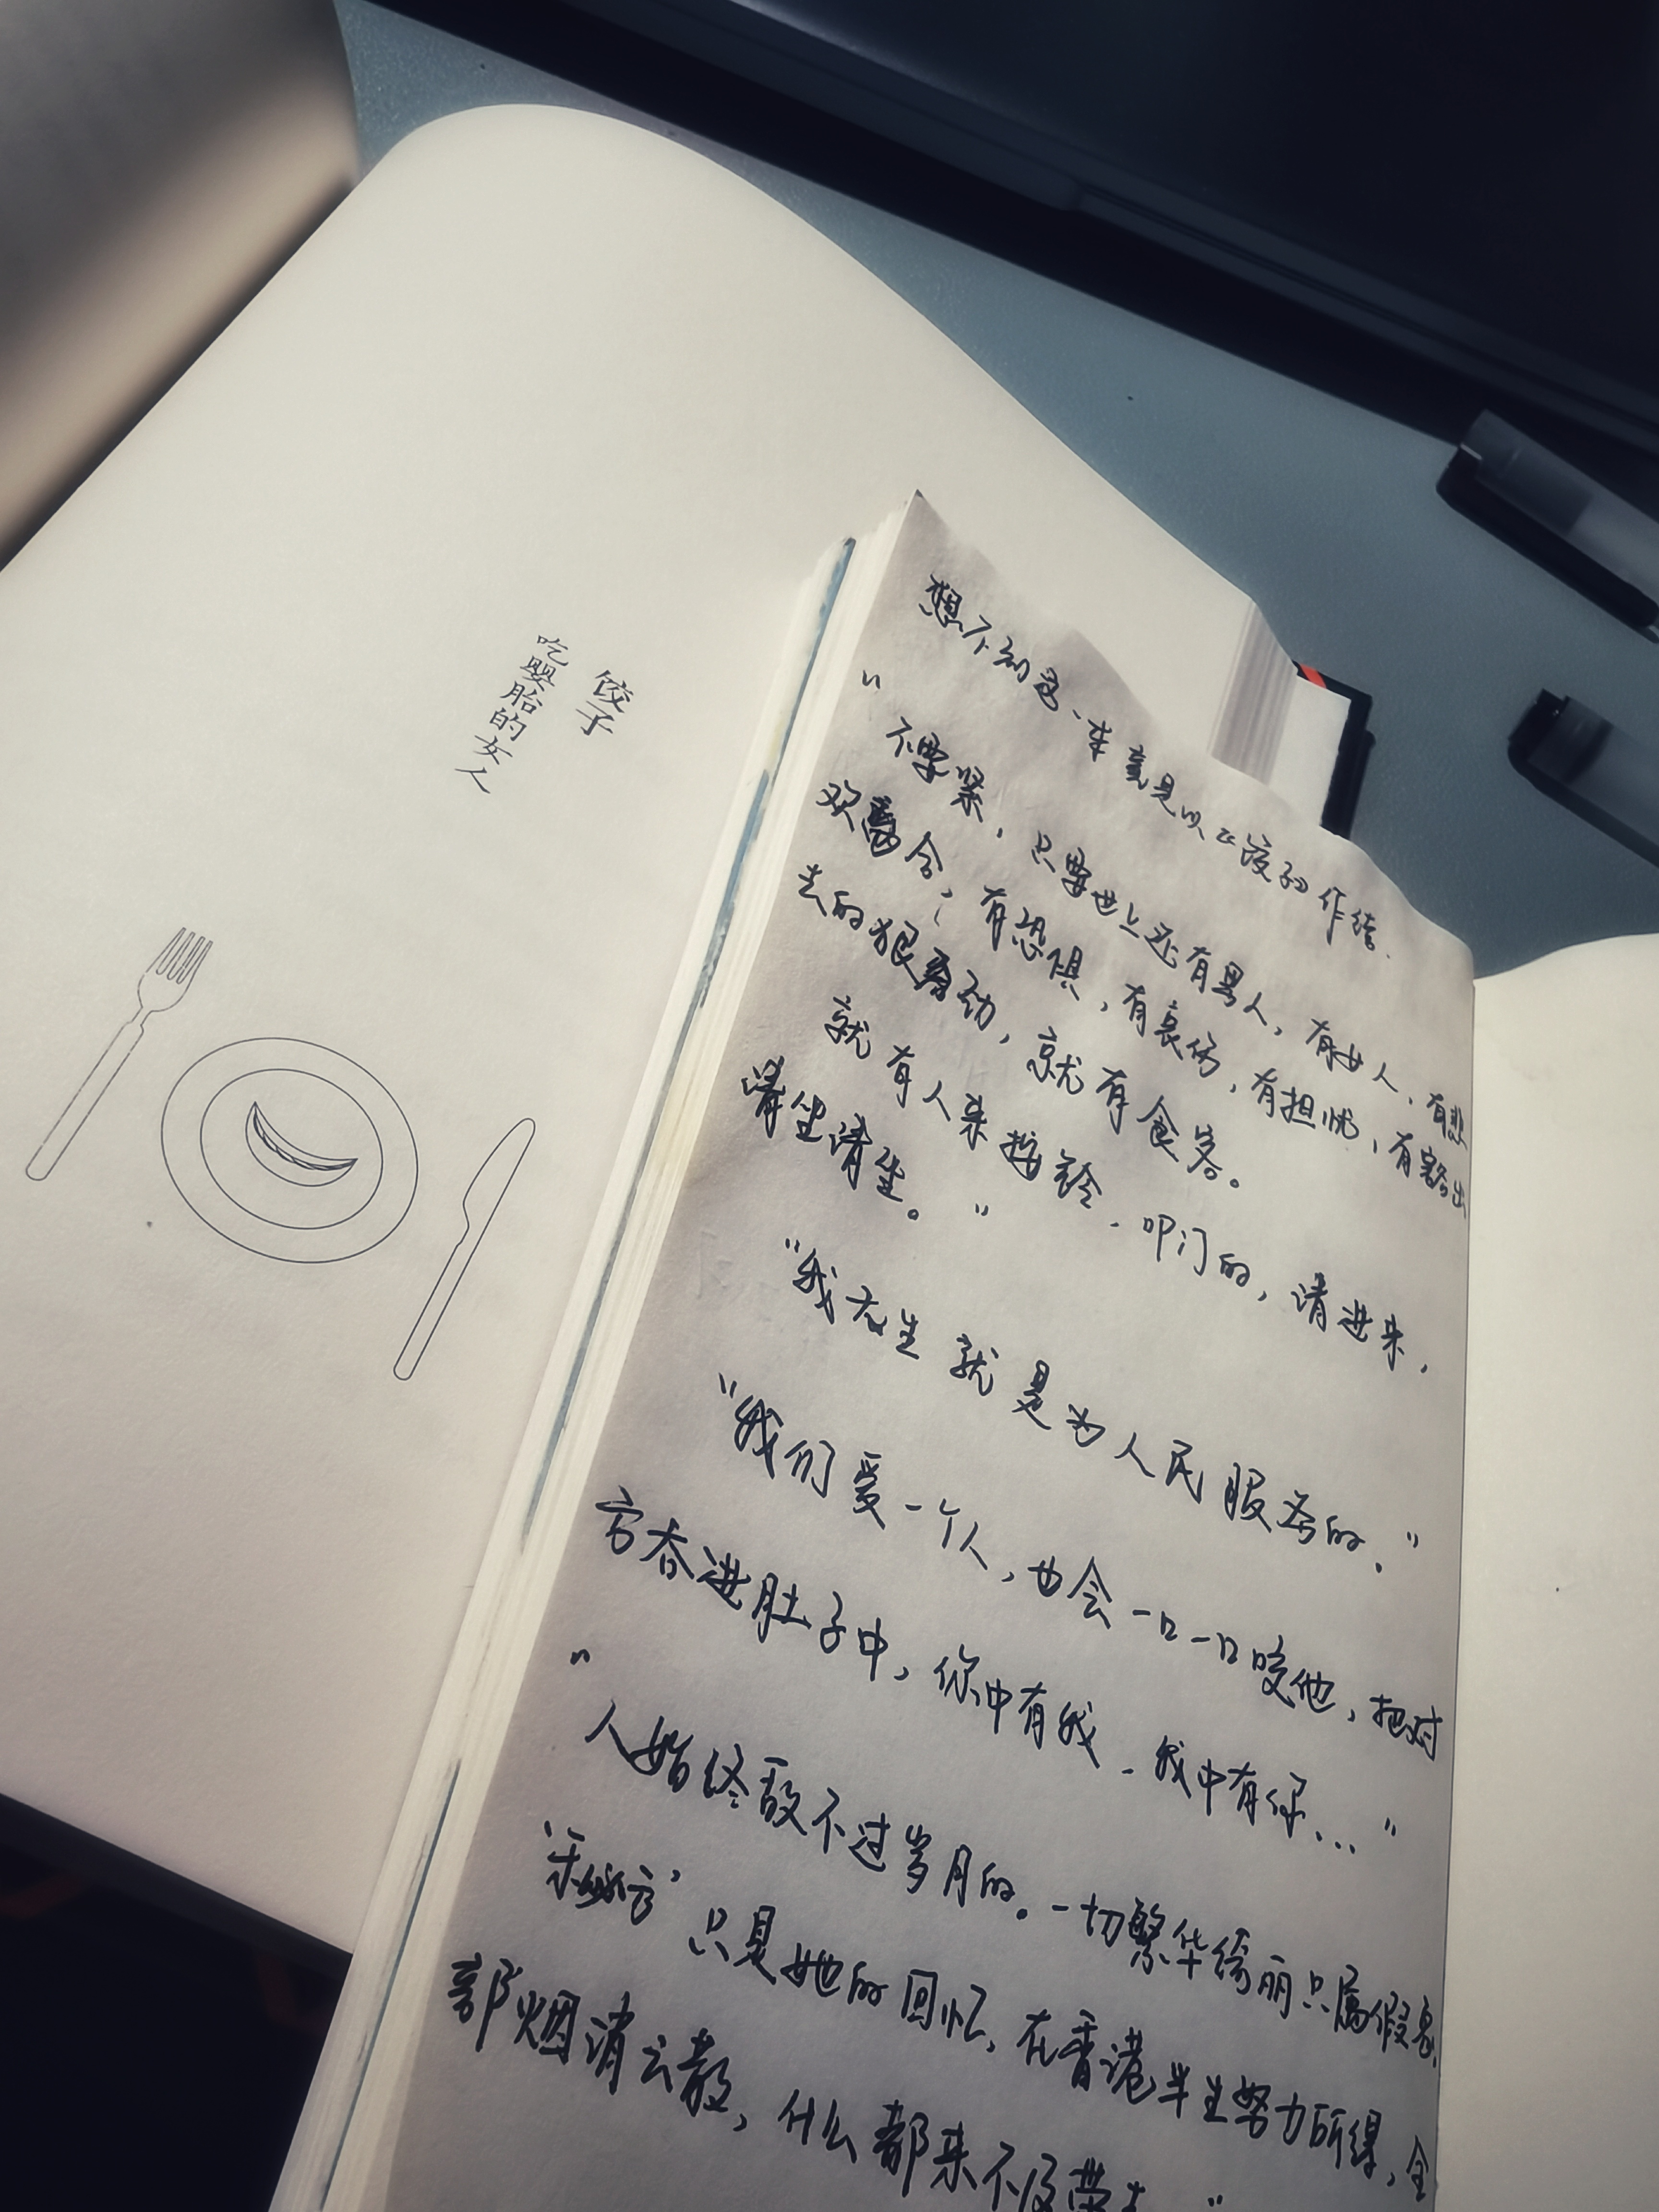 饺子
吃婴胎的女人
想不到这一章竟是以《饺子》作结.
“不要紧，只要世上还有男人，有女人，有悲
欢离合，有恐惧，有哀伤，有担忧，有豁出
去的狠劲，就有食客。
就有人来按铃、叩门的，请进来，
请坐请坐。”
“我天生就是为人民服务的.”
“我们爱一个人，也会一口一口咬他，把对
方吞进肚子中，你中有我、我中有你...”
“人始终敌不过岁月的。一切繁华绮丽只属假象，
只是她的回忆，在香港半生努力所得，全
部烟消云散，什么都来不及带走。”